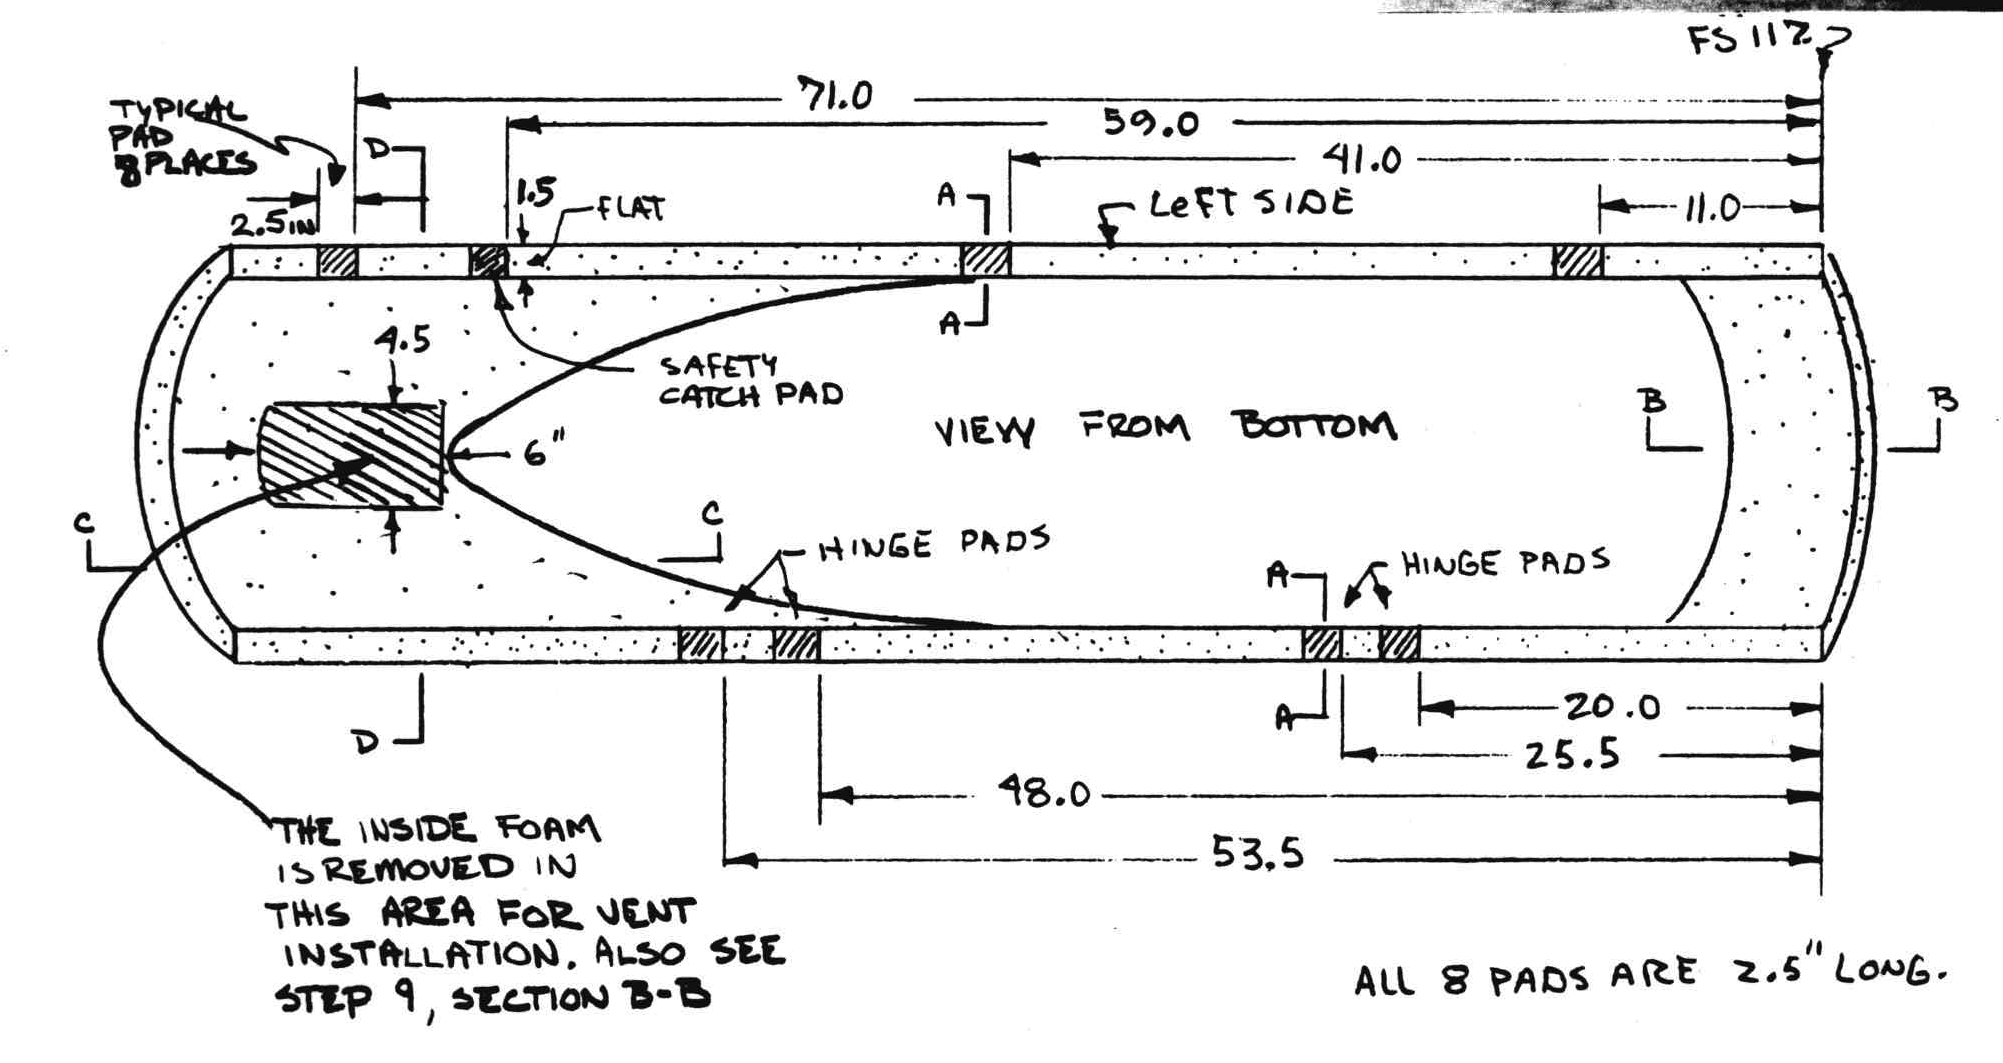 FS 112
71.0
59.0
41.0
11.0
TYPICAL
PAD
8 PLACES
2.5 IN
D
1.5
FLAT
A
LEFT SIDE
A
4.5
SAFETY
CATCH PAD
VIEW FROM BOTTOM
B
B
6"
C
C
HINGE PADS
A
HINGE PADS
D
A
20.0
25.5
48.0
53.5
THE INSIDE FOAM
IS REMOVED IN
THIS AREA FOR VENT
INSTALLATION. ALSO SEE
STEP 9, SECTION B-B
ALL 8 PADS ARE 2.5" LONG.